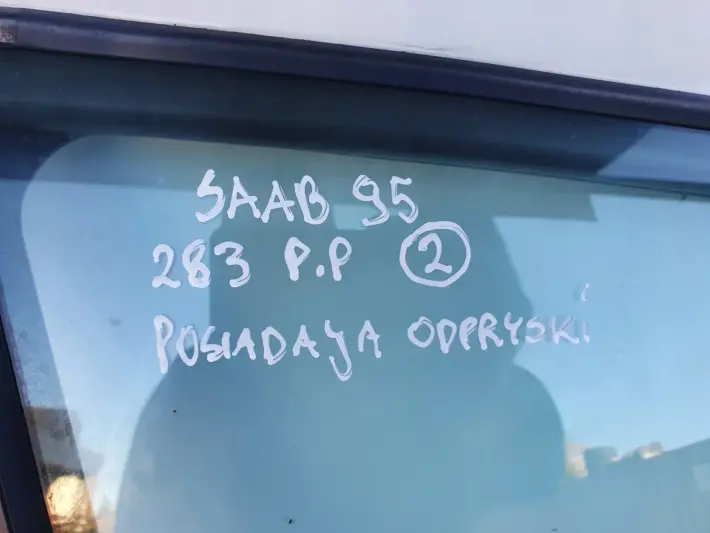 SAAB 95
283 P.P 2
POSIADAJA ODPRYSKI